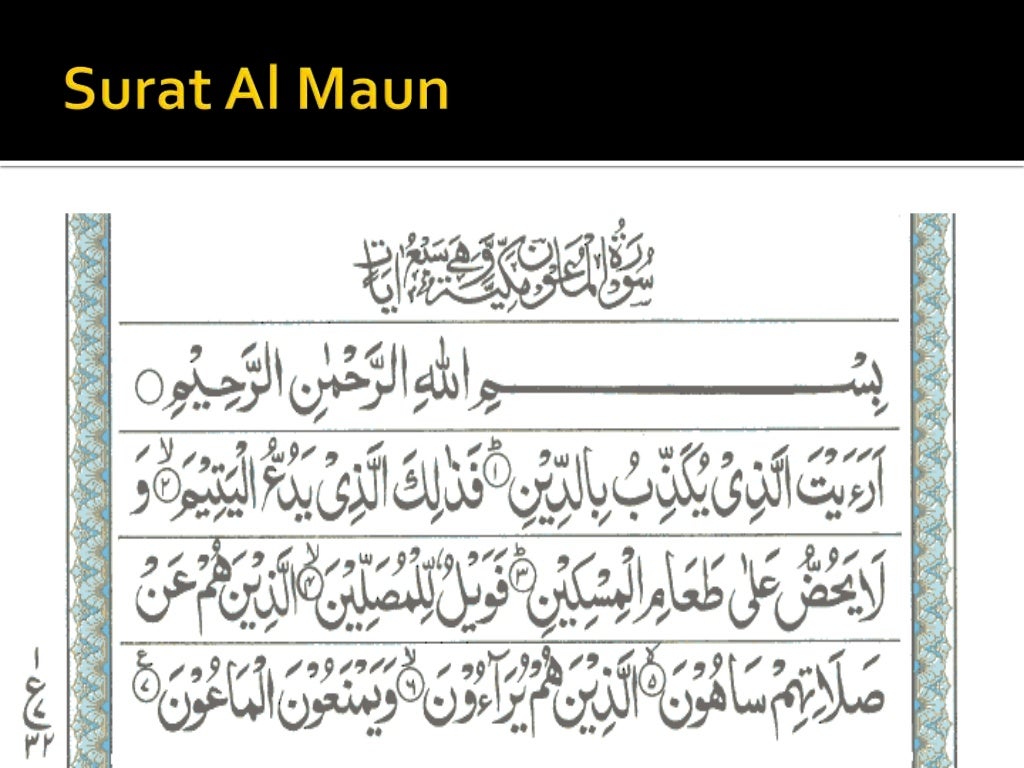 Surat Al Maun
سُوْرَةُ الْمَاعُوْنِ مَكِّيَّةٌ وَّهِيَ سَبْعُ اٰيَاتٍ
بِسْمِ اللهِ الرَّحْمٰنِ الرَّحِيْمِ ○
اَرَءَيْتَ الَّذِىْ يُكَذِّبُ بِالدِّيْنِ ؕ﴿۱﴾ فَذٰلِكَ الَّذِىْ يَدُعُّ الْيَتِيْمَ ۙ﴿۲﴾ وَ
لَا يَحُضُّ عَلٰى طَعَامِ الْمِسْكِيْنِ ؕ﴿۳﴾ فَوَيْلٌ لِّلْمُصَلِّيْنَ ۙ﴿۴﴾ الَّذِيْنَ هُمْ عَنْ
صَلَاتِهِمْ سَاهُوْنَ ۙ﴿۵﴾ الَّذِيْنَ هُمْ يُرَآءُوْنَ ۙ﴿۶﴾ وَيَمْنَعُوْنَ الْمَاعُوْنَ ﴿۷﴾ ع
۱
ع
۷
۳۲